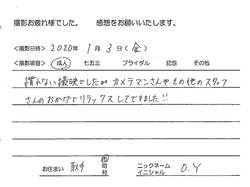 撮影お疲れ様でした。 感想をお願いいたします。
<撮影日時> 2020年 1月 3日(金)
<撮影項目> 成人 七五三 ブライダル 記念 その他
慣れない撮影でしたがカメラマンさんやその他のスタッフ
さんのおかげでリラックスしてできました!!
お住まい 取手 市町村 ニックネーム イニシャル O.Y